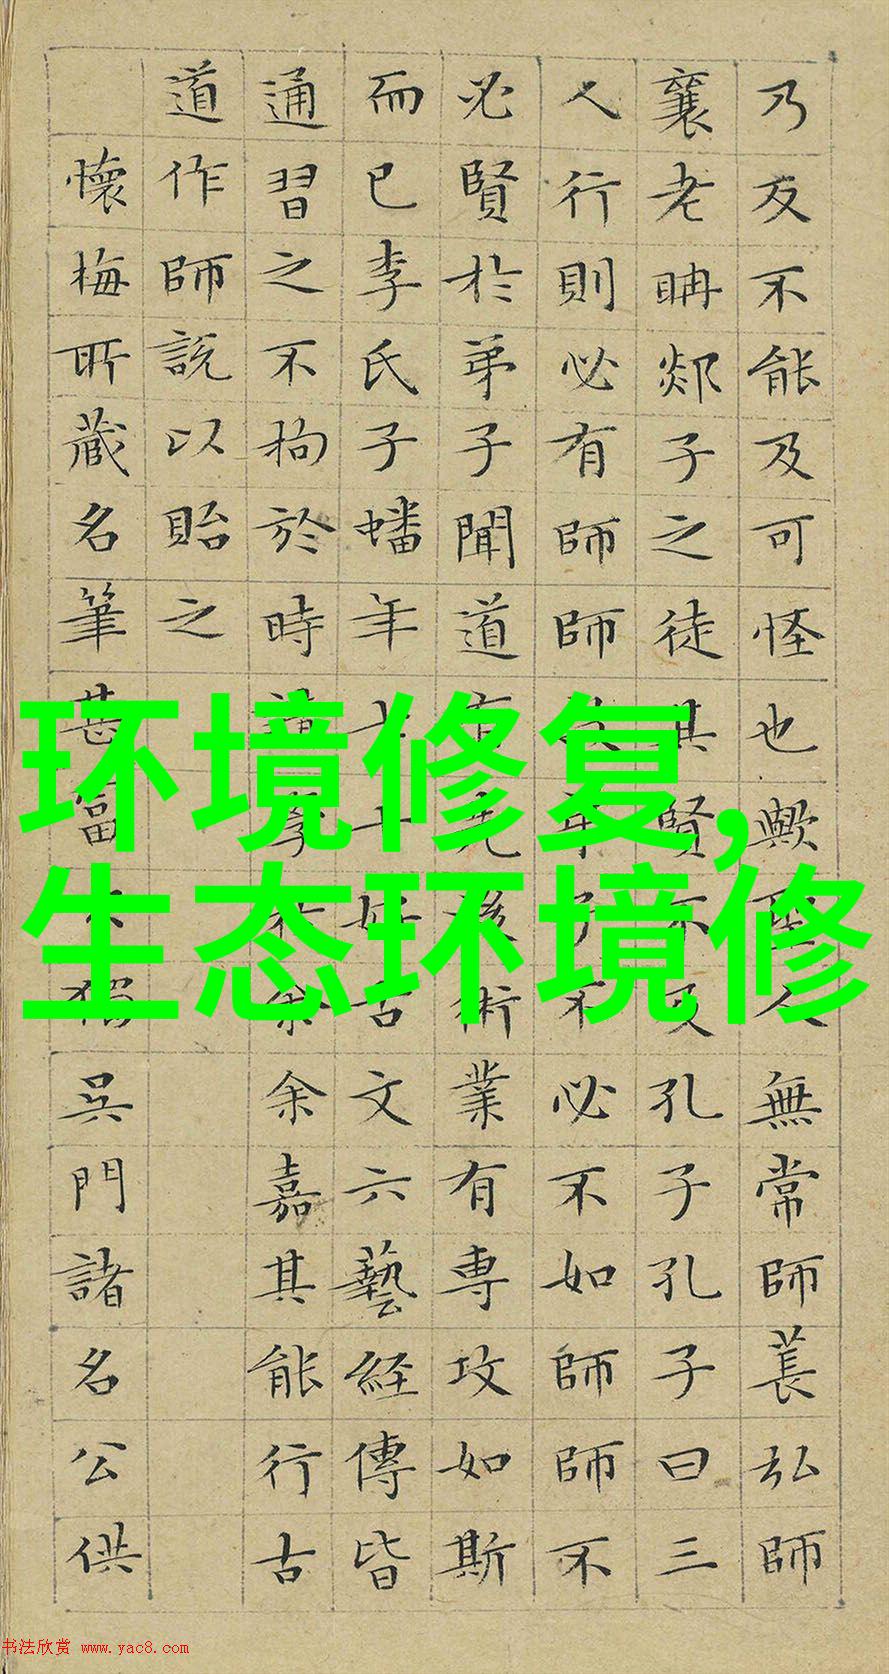 乃反不能及可怪也歟聖人無常師萇弘師
襄老聃郯子之徒其賢不及孔子孔子曰三
人行則必有師師故弟子不必不如師師不
必賢於弟子聞道有先後術業有專攻如斯
而已李氏子蟠年十七好古文六藝経傳皆
通習之不拘於時請學於余余嘉其能行古
道作師說以貽之
懷梅所藏名筆甚富不獨吳門諸名公供
环境修复,
生态环境修
书法欣赏 www.yac8.com